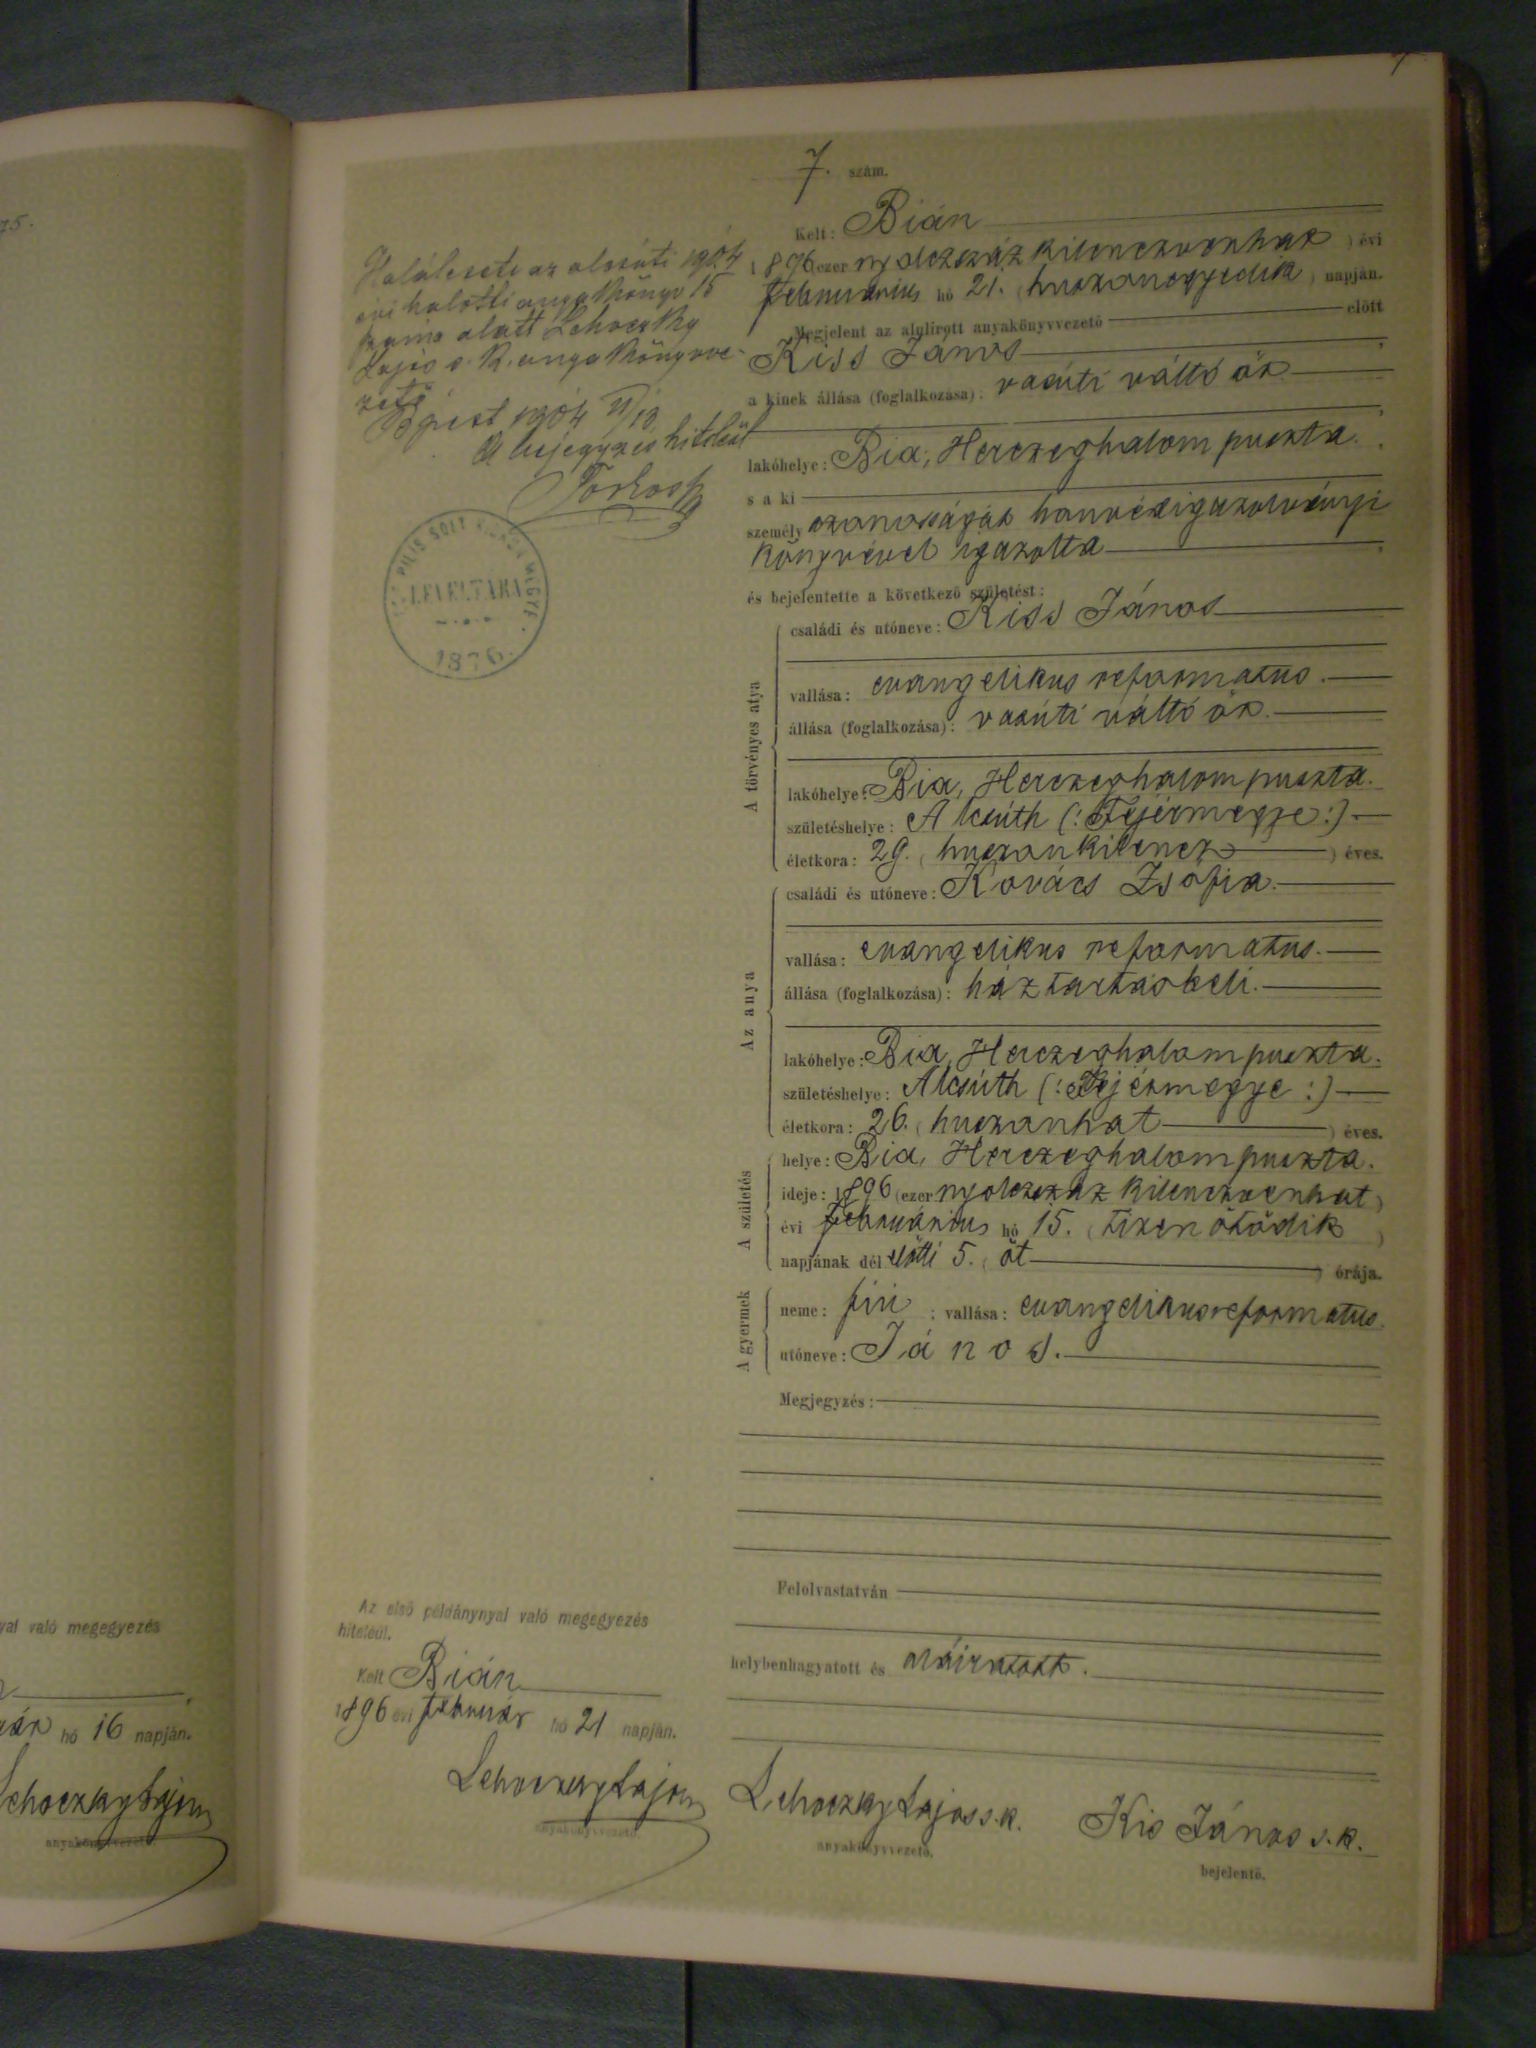 75.
7. szám.
Kelt: Bián
1896 (ezer nyolczszáz kilenczvenhat) évi
februárius hó 21. (huszonegyedik) napján.
Megjelent az alulirott anyakönyvvezető előtt
Kiss János
a kinek állása (foglalkozása): vasúti váltó őr
lakóhelye: Bia, Herczeghalom puszta.
s a ki
személy azonosságát honvédigazolványi
könyvével igazolta
és bejelentette a következő születést:
A törvényes atya
családi és utóneve: Kiss János
vallása: evangelikus reformatus.
állása (foglalkozása): vasúti váltó őr.
lakóhelye: Bia, Herczeghalom puszta.
születéshelye: Alcsúth (: Fejérmegye :)
életkora: 29. (huszonkilencz) éves.
Az anya
családi és utóneve: Kovács Zsófia.
vallása: evangelikus reformatus.
állása (foglalkozása): háztartásbeli.
lakóhelye: Bia, Herczeghalom puszta.
születéshelye: Alcsúth (: Fejérmegye :)
életkora: 26. (huszonhat) éves.
A születés
helye: Bia, Herczeghalom puszta.
ideje: 1896 (ezer nyolczszáz kilenczvenhat)
évi februárius hó 15. (tizenötödik)
napjának dél előtti 5. (öt) órája.
A gyermek
neme: fiú ; vallása: evangelikus reformatus.
utóneve: János.
Megjegyzés:
Felolvastatván
helybenhagyatott és aláiratott.
Lehoczky Lajos s. k.
anyakönyvvezető.
Kis János s. k.
bejelentő.
Halálesete az alcsúti 1904
évi halotti anyakönyv 15
száma alatt Lehoczky
Lajos s. k. anyakönyvve-
zető
Bpest 1904 VI/18
A bejegyzés hiteléül
PILIS SOLT KISKUN MEGYE
LEVÉLTÁRA
1876.
Az első példánynyal való megegyezés
hiteléül.
Kelt Bián
1896 évi február hó 21 napján.
Lehoczky Lajos
anyakönyvvezető.
nyal való megegyezés
hó 16 napján.
Lehoczky Lajos
anyakönyvvezető